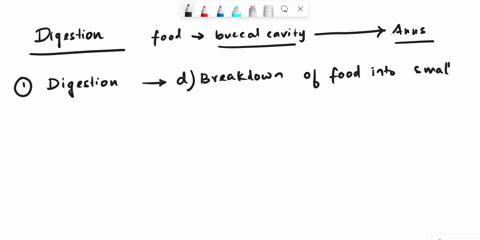 Digestion food → buccal cavity → Anus
① Digestion → d) Breakdown of food into small